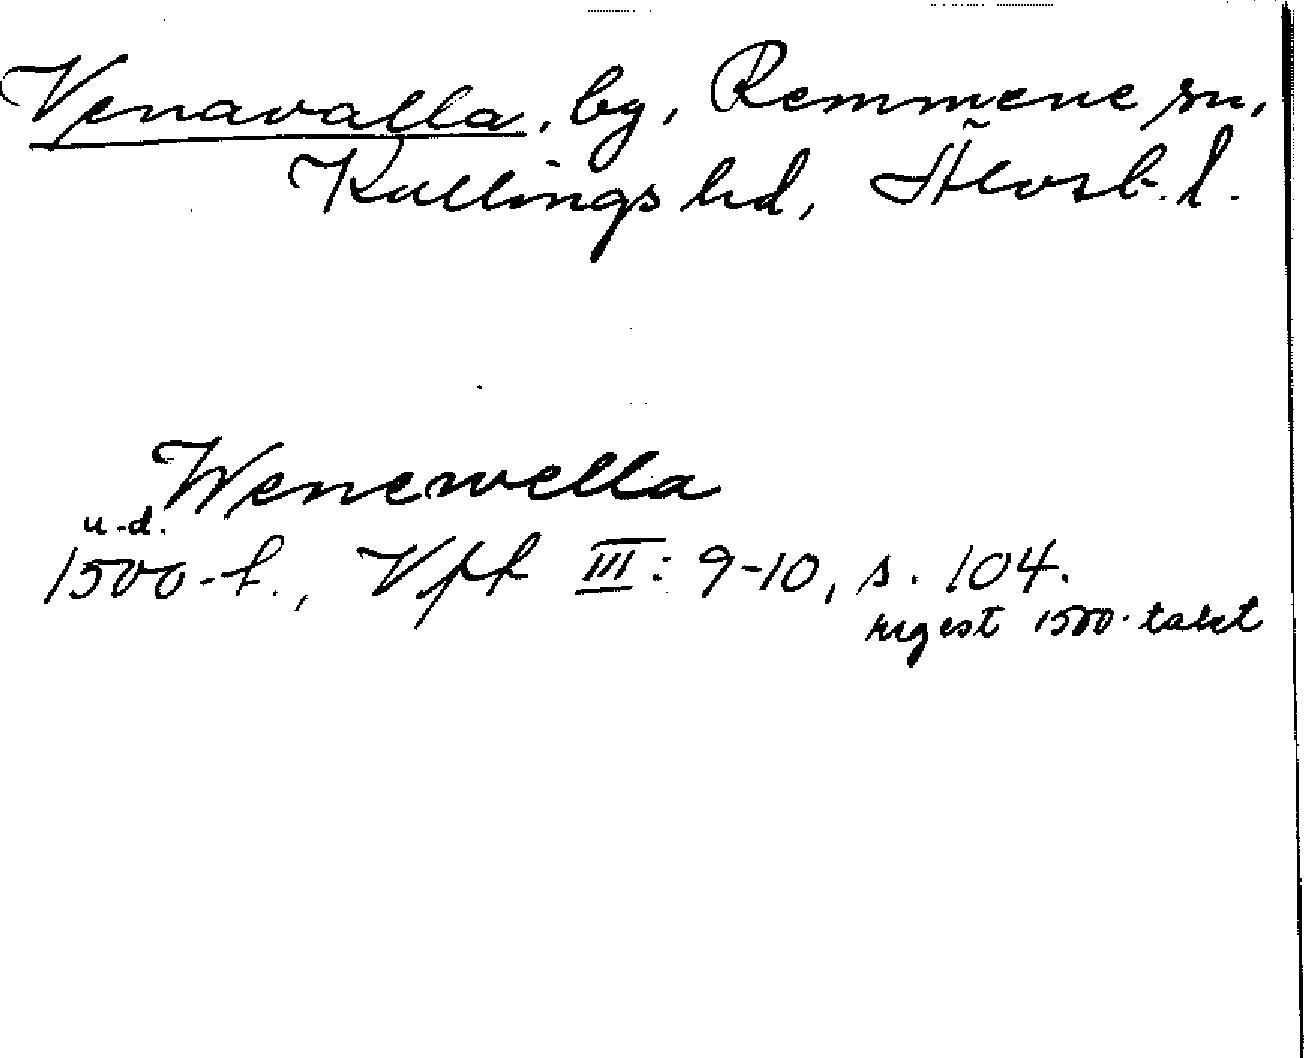 Venavalla, by, Remmene sn,
Kullings hd, Älvsb. l.
Wenewella
u.d.
1500-t., Vft III: 9-10, s. 104.
regest 1500-talet